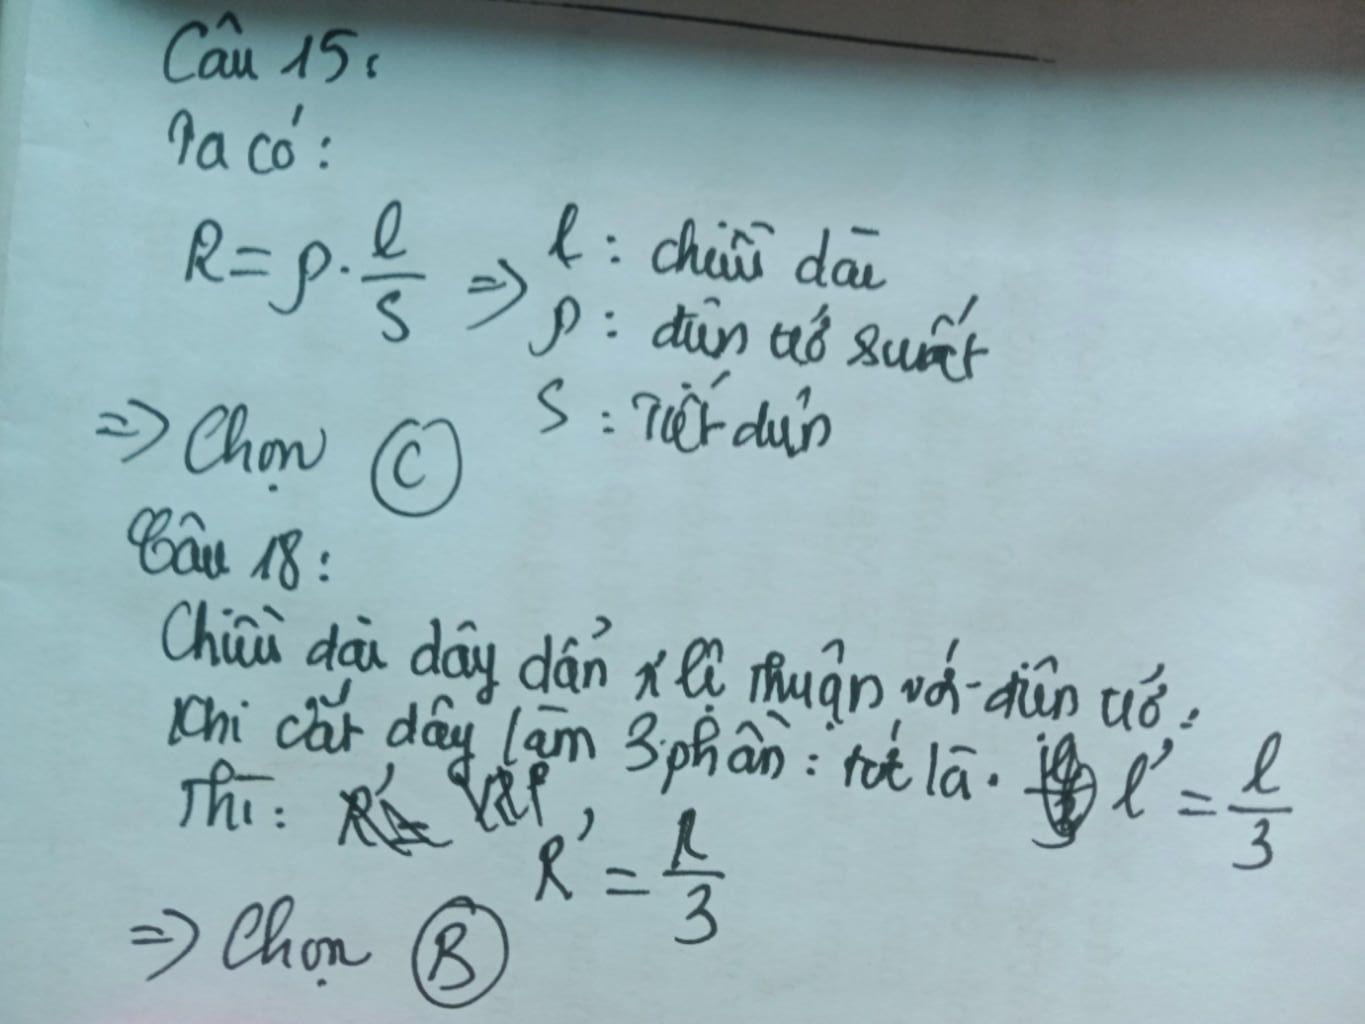 Câu 15:
Ta có:
R = ρ . l/S => l : chiều dài
ρ : điện trở suất
S : Tiết diện
=> Chọn C
Câu 18:
Chiều dài dây dẩn tỉ lệ thuận với điện trở.
Khi cắt dây làm 3 phần : tức là . l' = l/3
Thì: R' = R/3
=> Chọn B